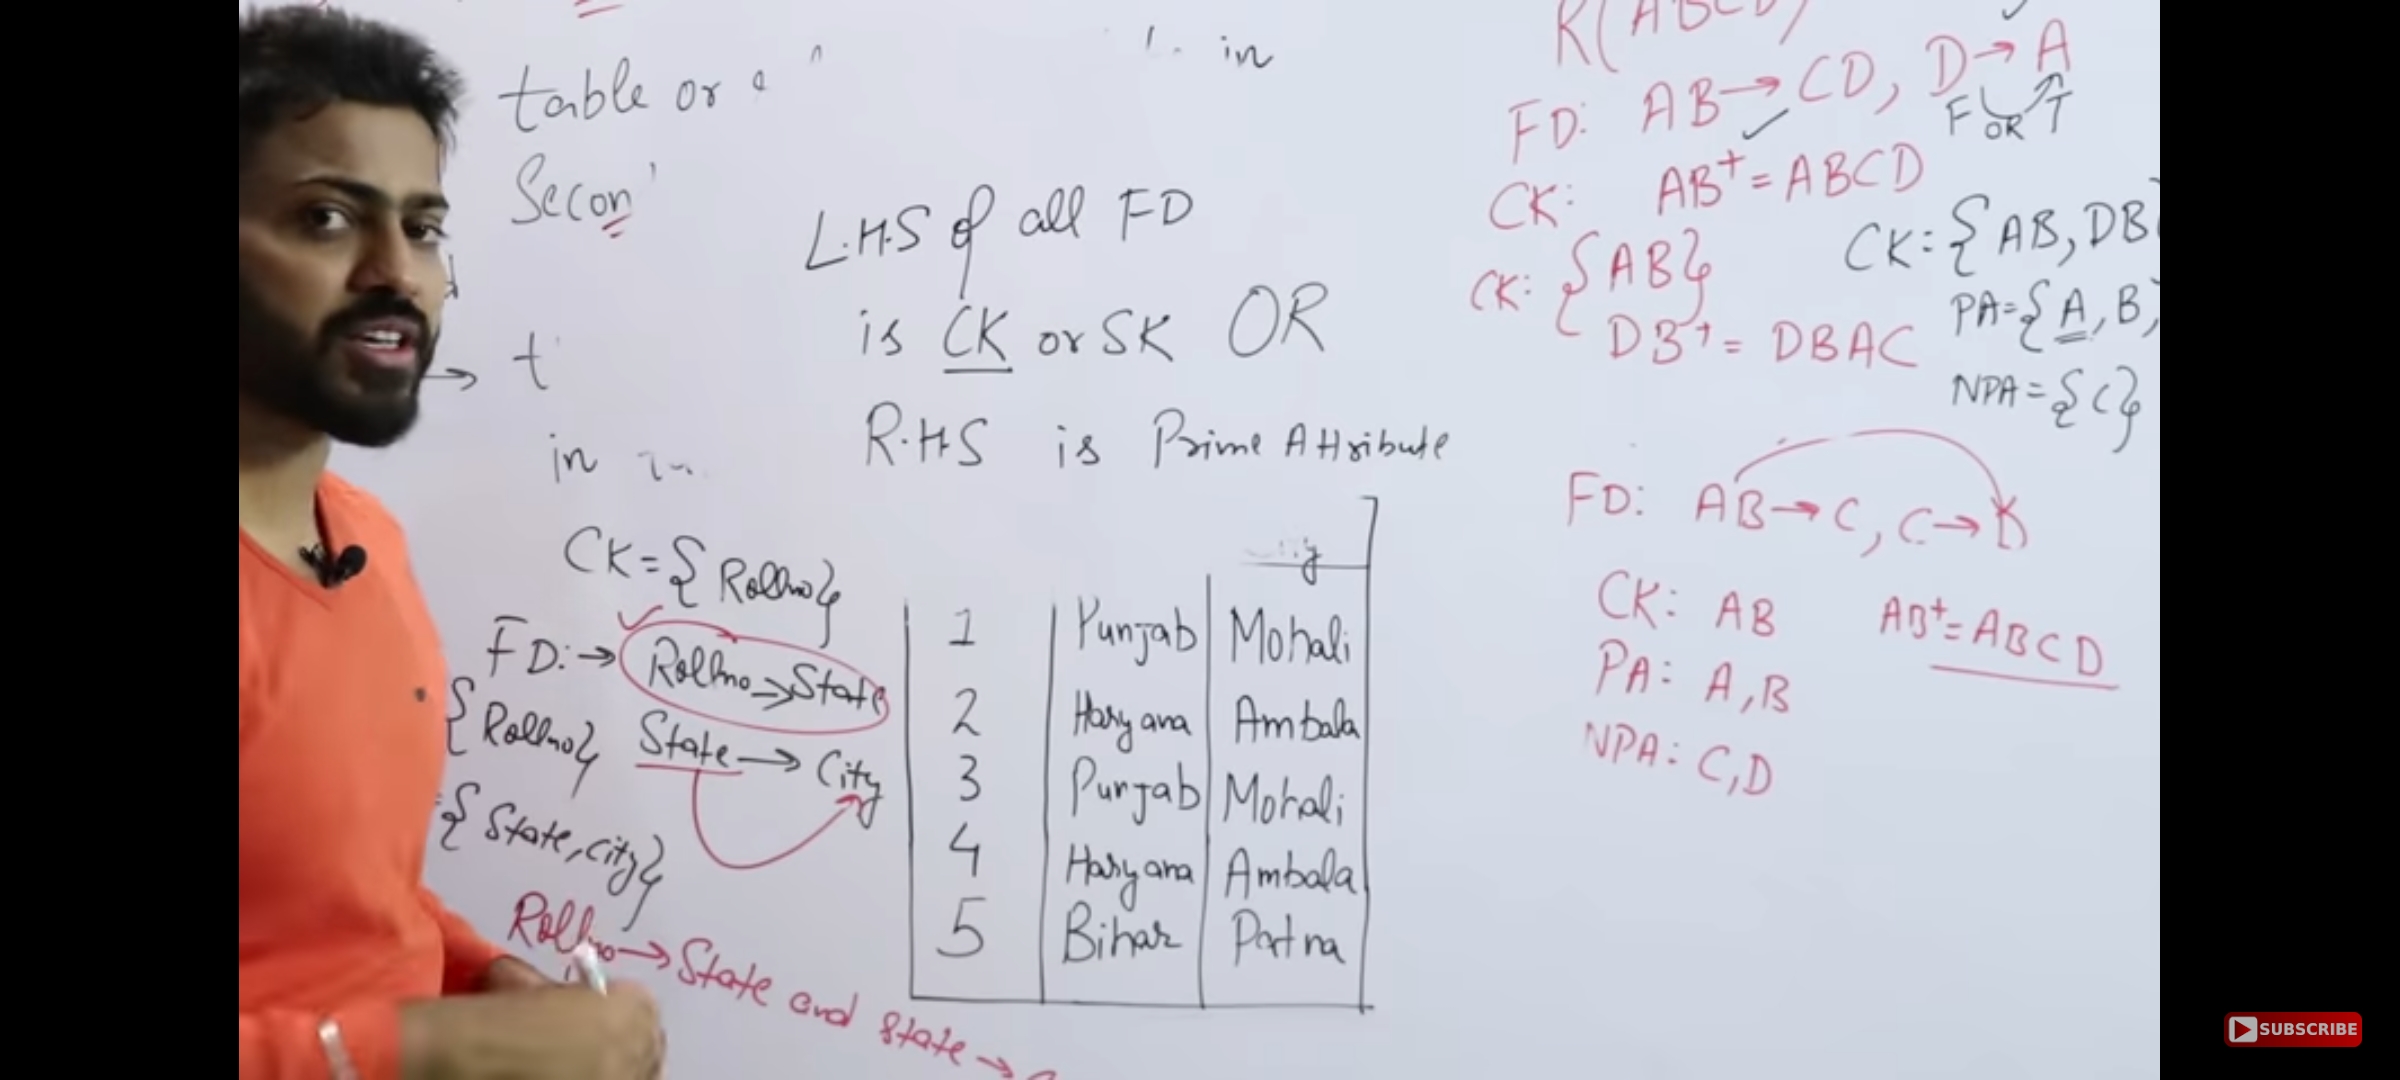 table or
in
Secon
L.H.S of all FD
is CK or SK OR
R.H.S is Prime Attribute
t
in
CK = { Rollno}
FD: → Rollno → State
{ Rollno} State → City
{ State, city}
Rollno → State and state →
1 Punjab Mohali
2 Haryana Ambala
3 Punjab Mohali
4 Haryana Ambala
5 Bihar Patna
R(ABCD)
FD: AB → CD, D → A
F OR T
CK: AB+ = ABCD
CK: {AB}
DB+ = DBAC
CK = { AB, DB
PA = { A, B,
NPA = { C}
FD: AB → C, C → D
CK: AB AB+ = ABCD
PA: A, B
NPA: C, D
SUBSCRIBE